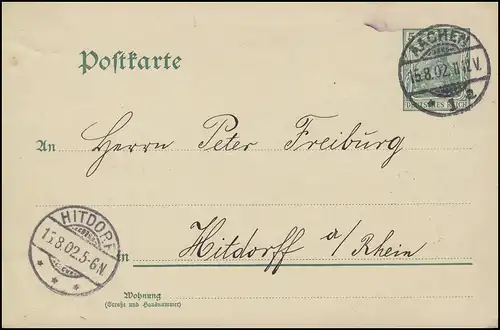 Postkarte
AACHEN
15.8.02.11-12V.
* 1 e
DEUTSCHES REICH
An Herrn Peter Freiburg
HITDORF
15.8.02.5-6N.
* * *
in Hitdorff a/Rhein
Wohnung
(Straße und Hausnummer)